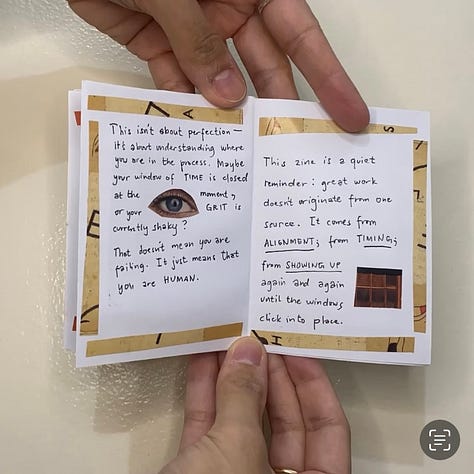 This isn't about perfection —
it's about understanding where
you are in the process. Maybe
your window of TIME is closed
at the moment,
or your GRIT is
currently shaky?
That doesn't mean you are
failing. It just means that
you are HUMAN.
This zine is a quiet
reminder: great work
doesn't originate from one
source. It comes from
ALIGNMENT; from TIMING;
from SHOWING UP
again and again
until the windows
click into place.